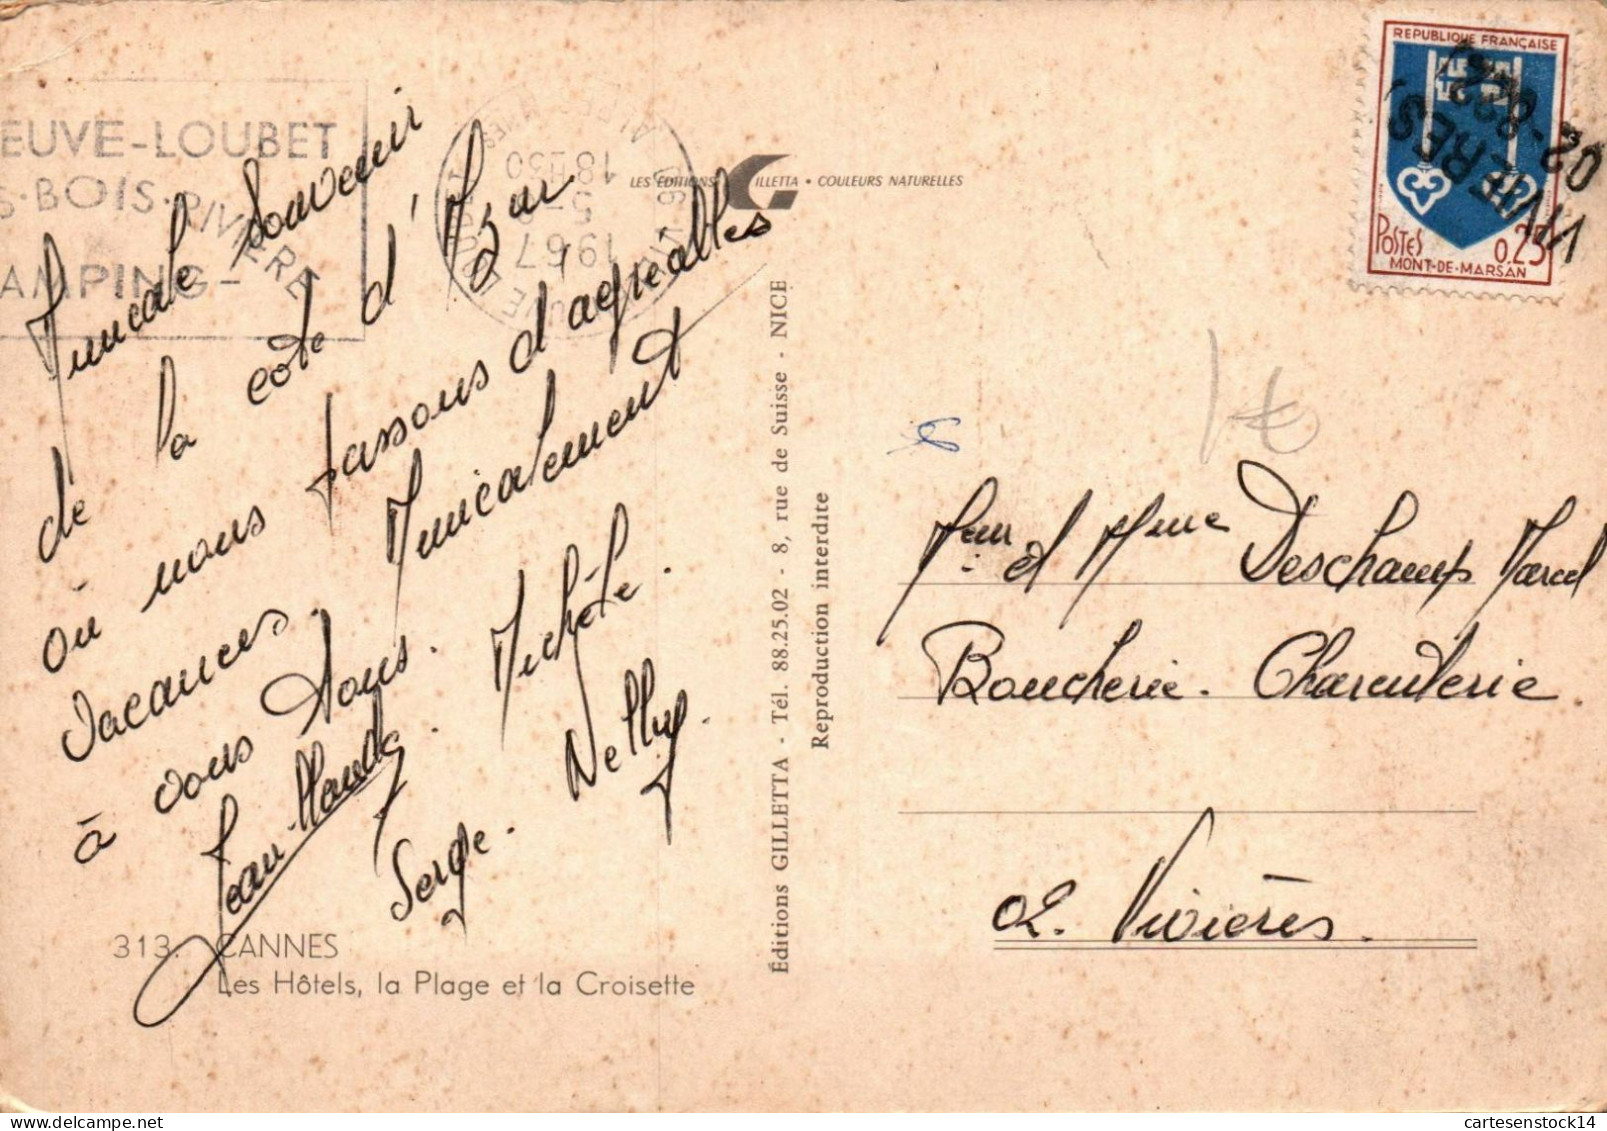 EUVE-LOUBET
S·BOIS·RIVIERE
AMPING-
18H30
5-8
1967
LES ÉDITIONS GILLETTA • COULEURS NATURELLES
REPUBLIQUE FRANÇAISE
POSTES 0.25
MONT-DE-MARSAN
VIVIERES
02-
Amicale Souvenir
de la côte d'Azur
où nous passons d'agréables
vacances. Amicalement
à vous tous. Michèle.
Jean-Claude. Nelly.
Serge.
313. CANNES
Les Hôtels, la Plage et la Croisette
Éditions GILLETTA - Tél. 88.25.02 - 8, rue de Suisse - NICE
Reproduction interdite
1€
Meur et Mme Deschamps Marcel
Boucherie. Charcuterie
02. Vivières.
cartesenstock14